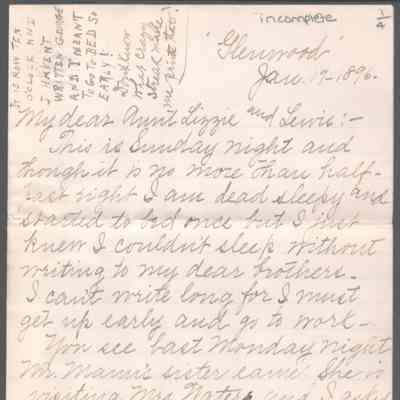 incomplete
1/4
IT IS NOW TEN
OCLOCK AND
I HAVENT
WRITTEN GEORGE
AND I MEANT
TO GO TO BED SO
EARLY!
this crazy
streak made
me and too!
"Glenwood"
Jan. 19-1896.
My dear Aunt Lizzie and Lewis:-
This is Sunday night and
though it is no more than half-
past eight I am dead sleepy and
started to bed once but I just
knew I couldn't sleep without
writing to my dear brothers-
I can't write long for I must
get up early and go to work-
You see last Monday night
Mr. Mann's sister came. She is
visiting Mrs. Waters and I asked